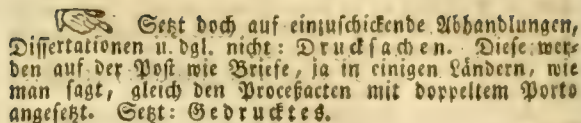 Setzt doch auf einzuschickende Abhandlungen,
Dissertationen u. dgl. nicht: Drucksachen. Diese wer-
den auf der Post wie Briefe, ja in einigen Ländern, wie
man sagt, gleich den Proceßacten mit doppeltem Porto
angesetzt. Setzt: Gedrucktes.